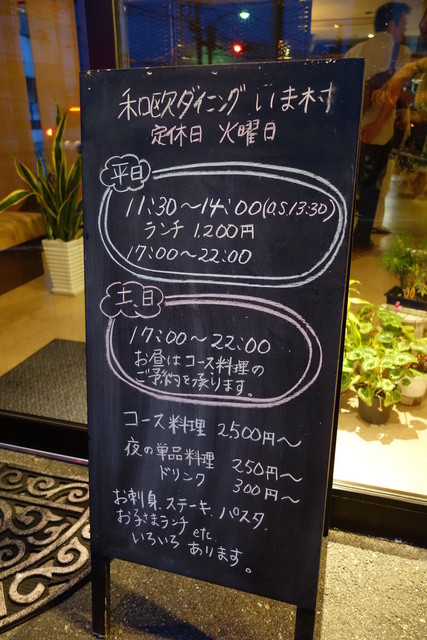 和欧ダイニング いま村
定休日 火曜日
平日
11:30～14:00(O.S.13:30)
ランチ 1,200円
17:00～22:00
土、日
17:00～22:00
お昼はコース料理の
ご予約を承ります。
コース料理 2500円～
夜の単品料理 250円～
ドリンク 300円～
お刺身、ステーキ、パスタ、
お子さまランチ etc.
いろいろ あります。